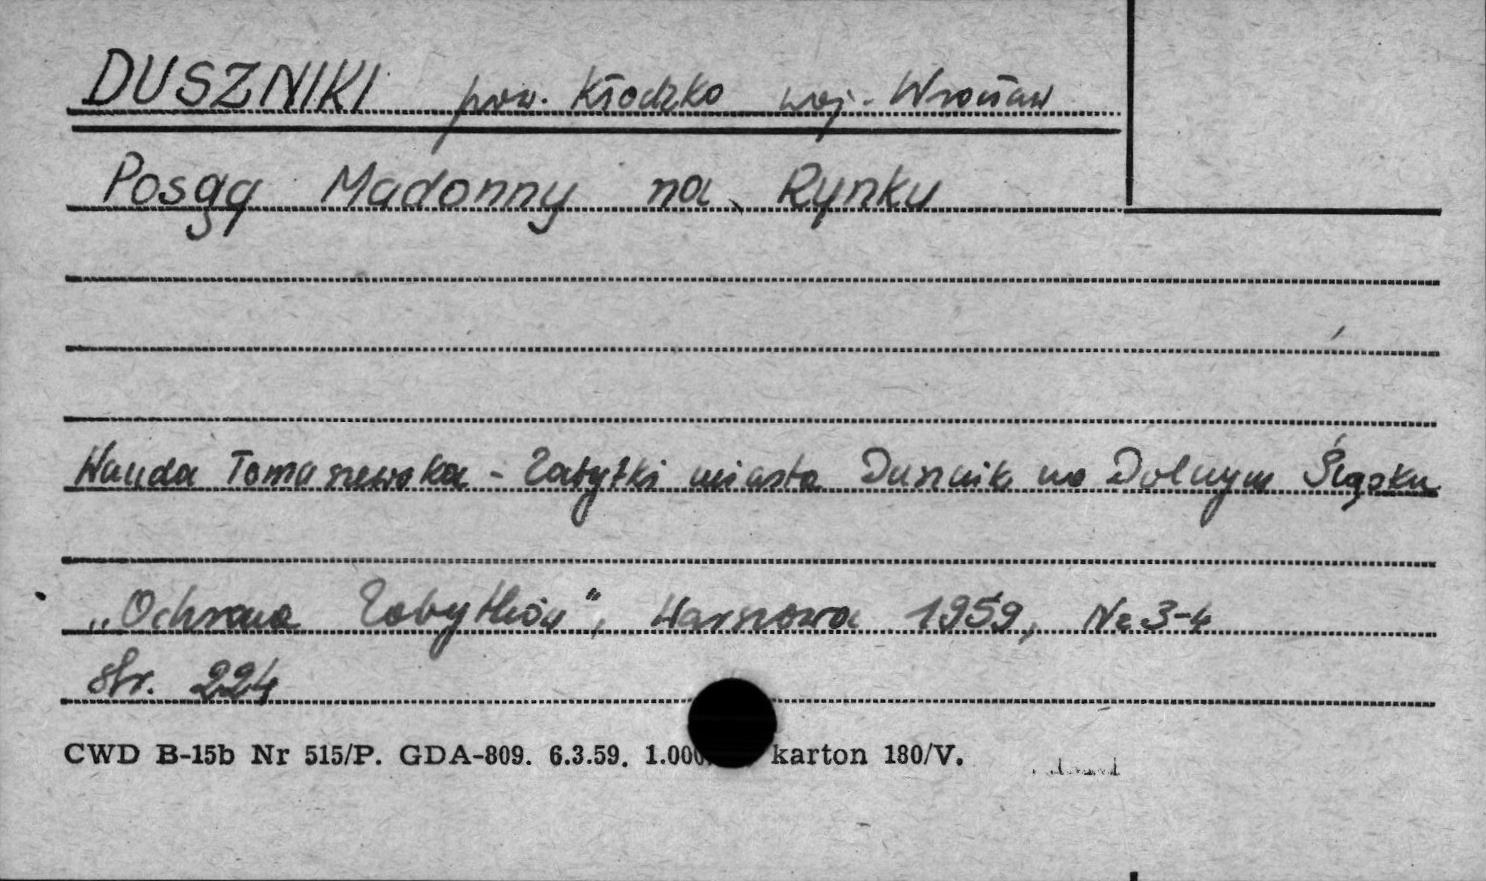 DUSZNIKI pow. Kłodzko woj. Wrocław
Posąg Madonny na Rynku
Wanda Tomaszewska - Zabytki miasta Dusznik na Dolnym Śląsku
„Ochrona Zabytków”, Warszawa 1959, Nr 3-4
str. 224
CWD B-15b Nr 515/P. GDA-809. 6.3.59. 1.000. karton 180/V.